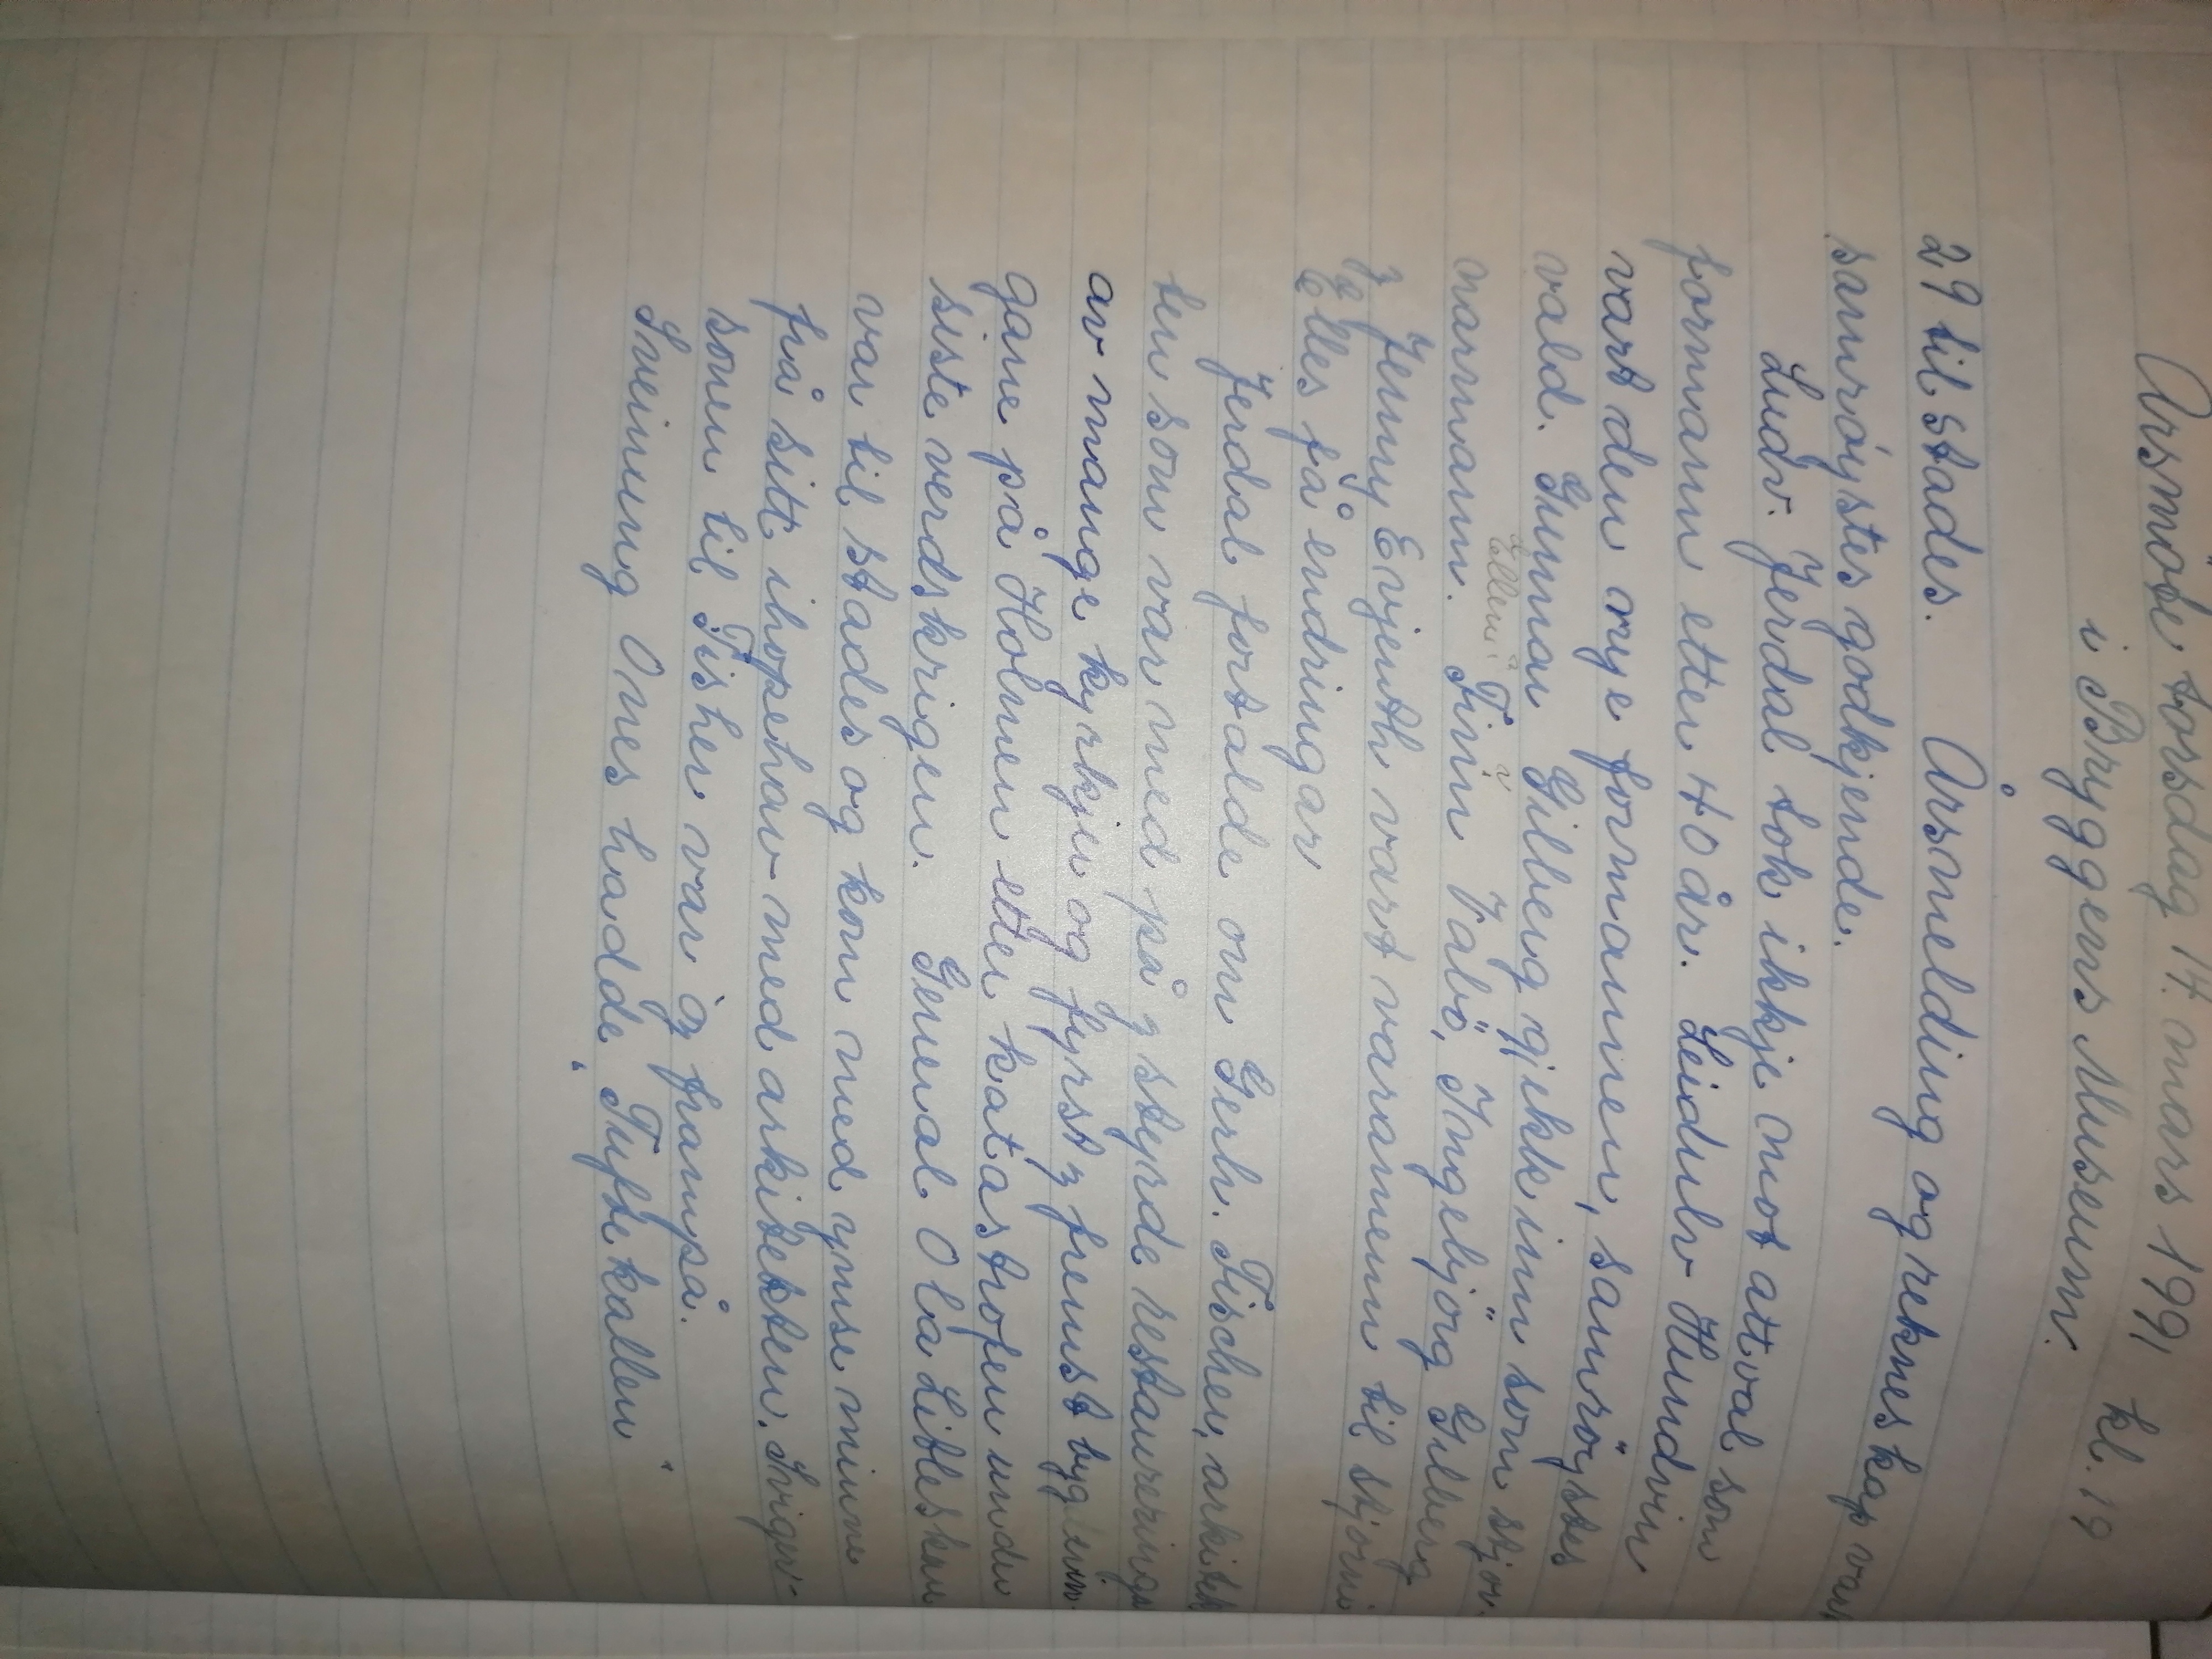 Årsmöte torsdag 14. mars 1991 kl. 19
i Bryggens Museum.
29 til stades. Årsmelding og rekneskap vart
samröystes godkjende.
Ludv. Jerdal tok ikkje mot attval som
formann etter 40 år. Leidulv Hundvin
vart den nye formannen, samröystes
vald. Gunnar Gilberg gjekk inn som stjor-
narmann. Finn Valbö, Ingebjörg Gilberg
z Jenny Evjenth vart varamenn til stjorni
z elles få endringar
Jerdal fortalde om Gerh. Fischer, arkitek-
ten som var med på z styrde restaureringa
av mange kyrkjer og fyrst z fremst bygnin-
gane på Holmen etter katastrofen under
siste verdskrigen. General Ola Libleskare
var til stades og kom med ymse minne
frå sitt ihopehav med arkitekten. Sviger-
sonen til Fisher var òg frampå.
Sveinung Ones hadde "Tuftekallen"